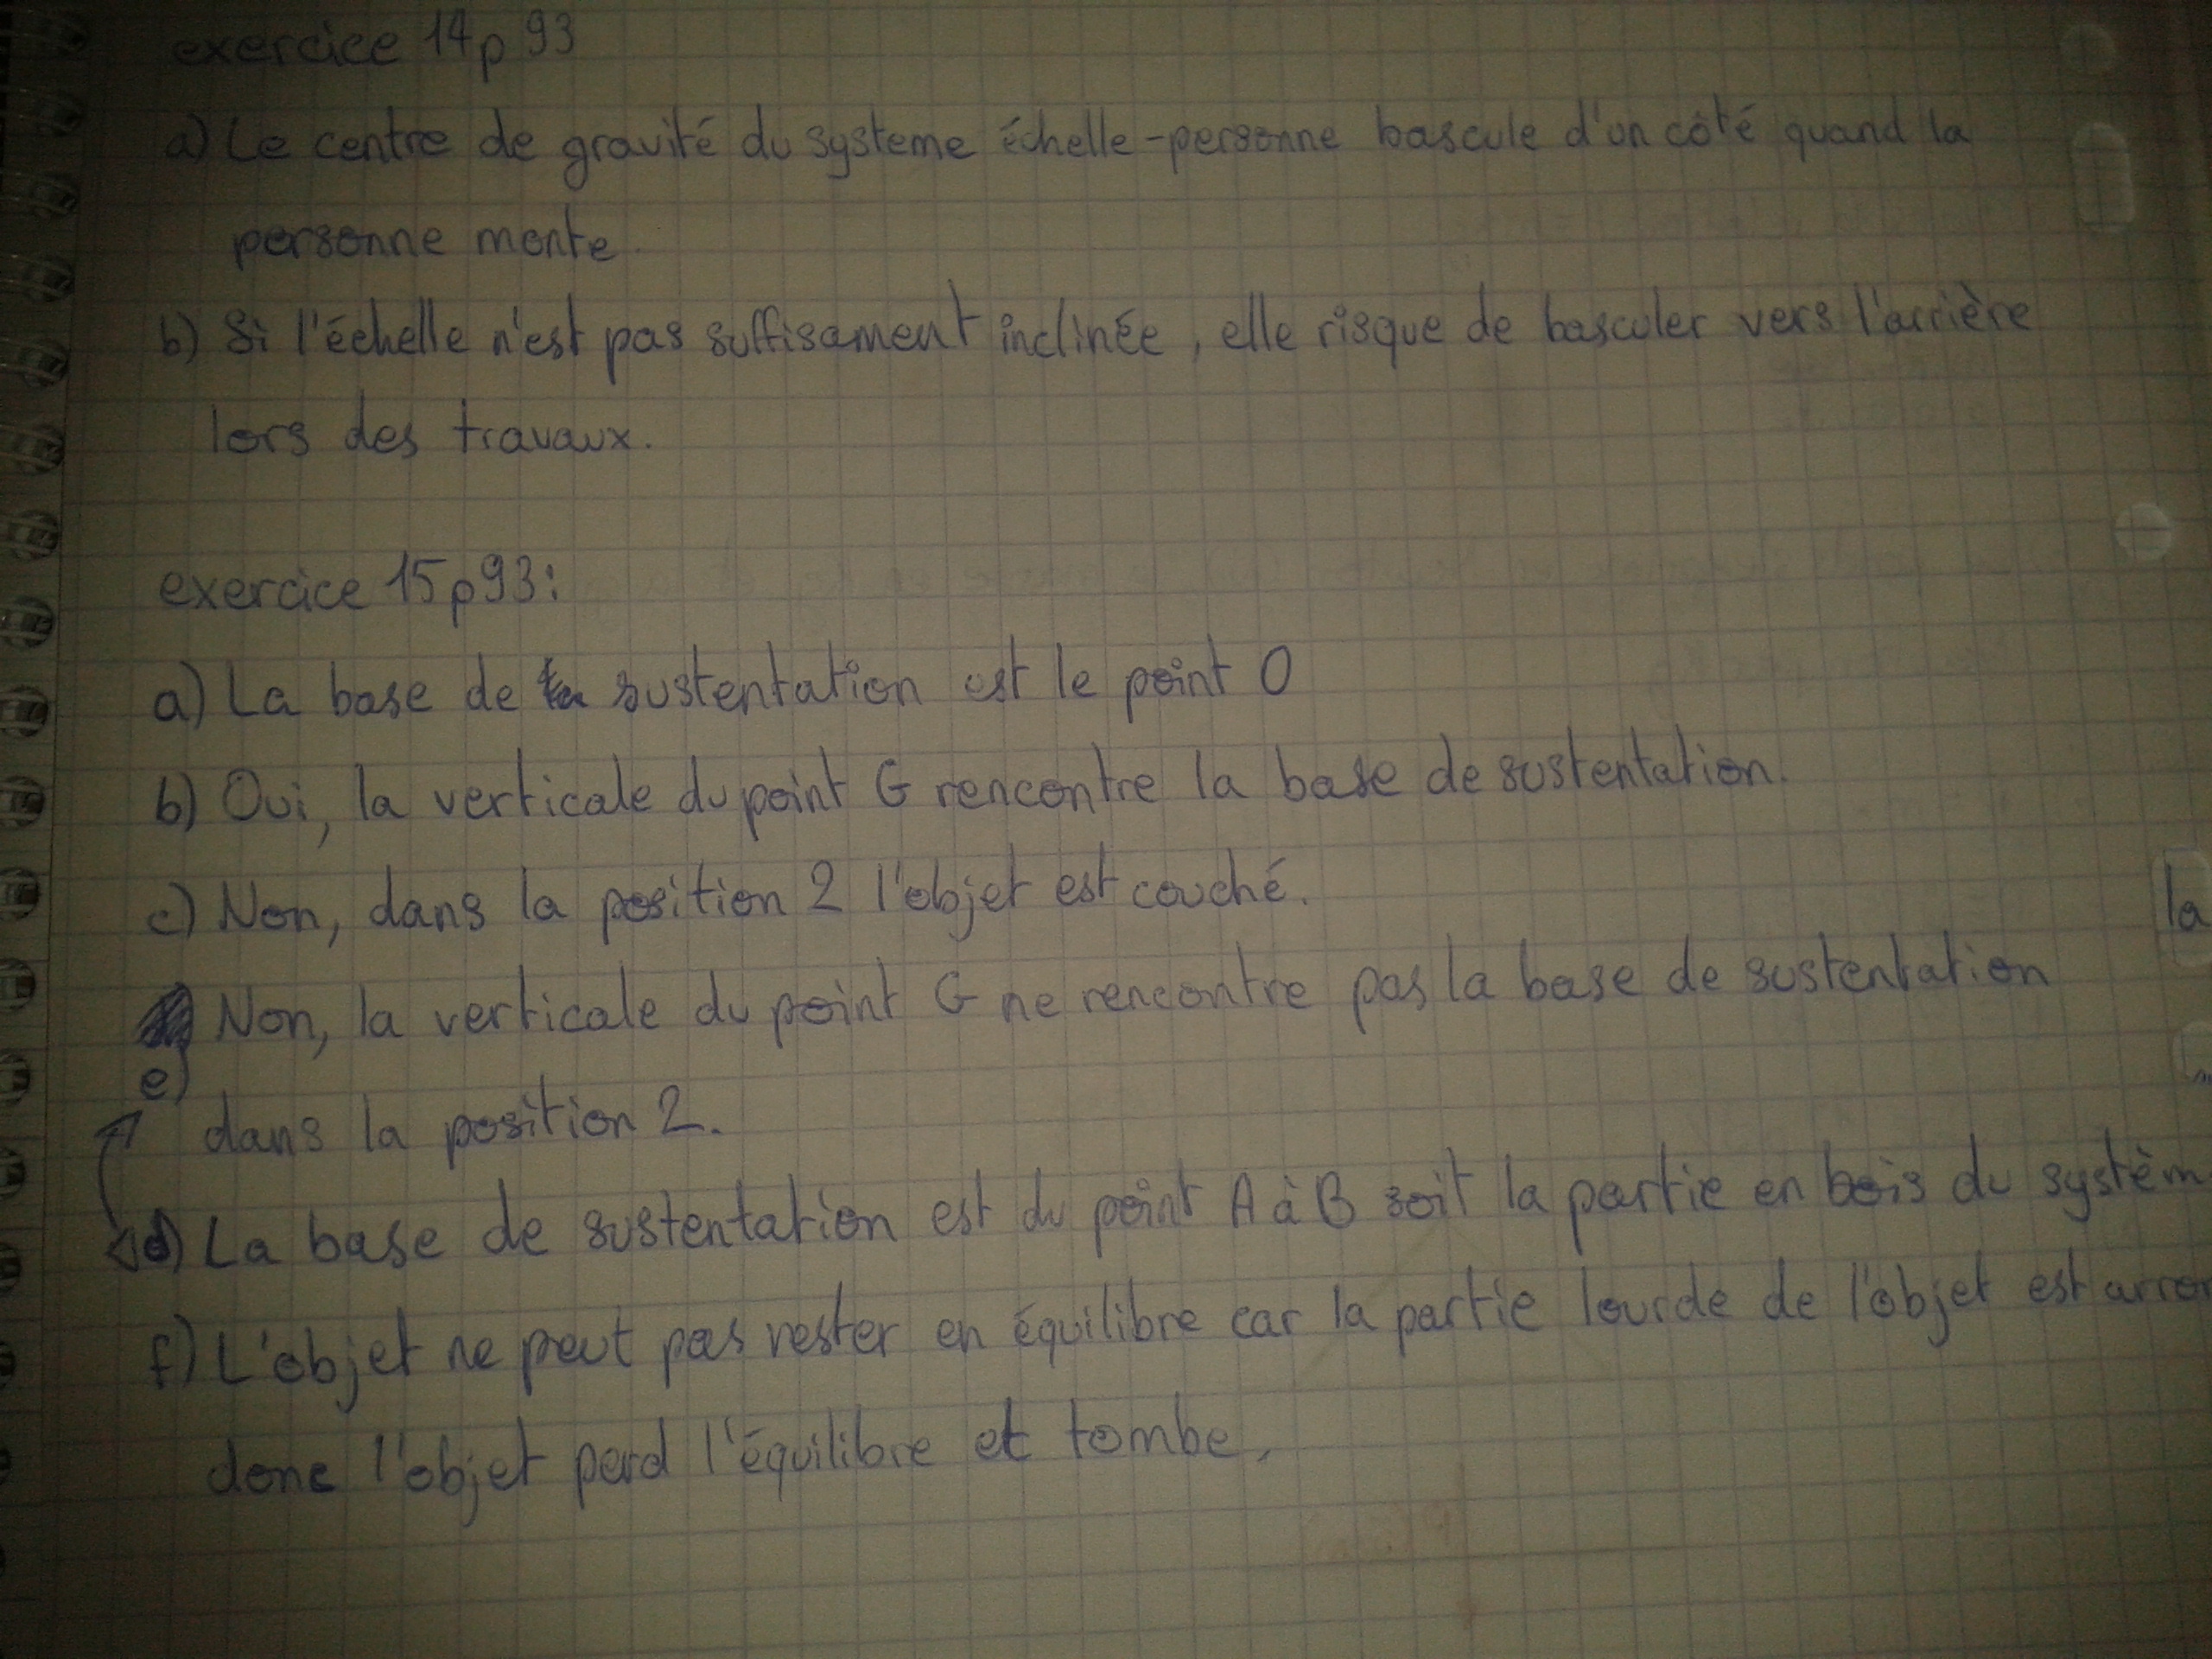 exercice 14p 93
a) Le centre de gravité du systeme échelle-personne bascule d'un côté quand la
personne monte.
b) Si l'échelle n'est pas suffisament inclinée, elle risque de basculer vers l'arrière
lors des travaux.
exercice 15p93:
a) La base de sustentation est le point O
b) Oui, la verticale du point G rencontre la base de sustentation.
c) Non, dans la position 2 l'objet est couché.
la
Non, la verticale du point G ne rencontre pas la base de sustentation
e)
dans la position 2.
d) La base de sustentation est du point A à B soit la partie en bois du systèm
f) L'objet ne peut pas rester en équilibre car la partie lourde de l'objet est arron
donc l'objet perd l'équilibre et tombe.